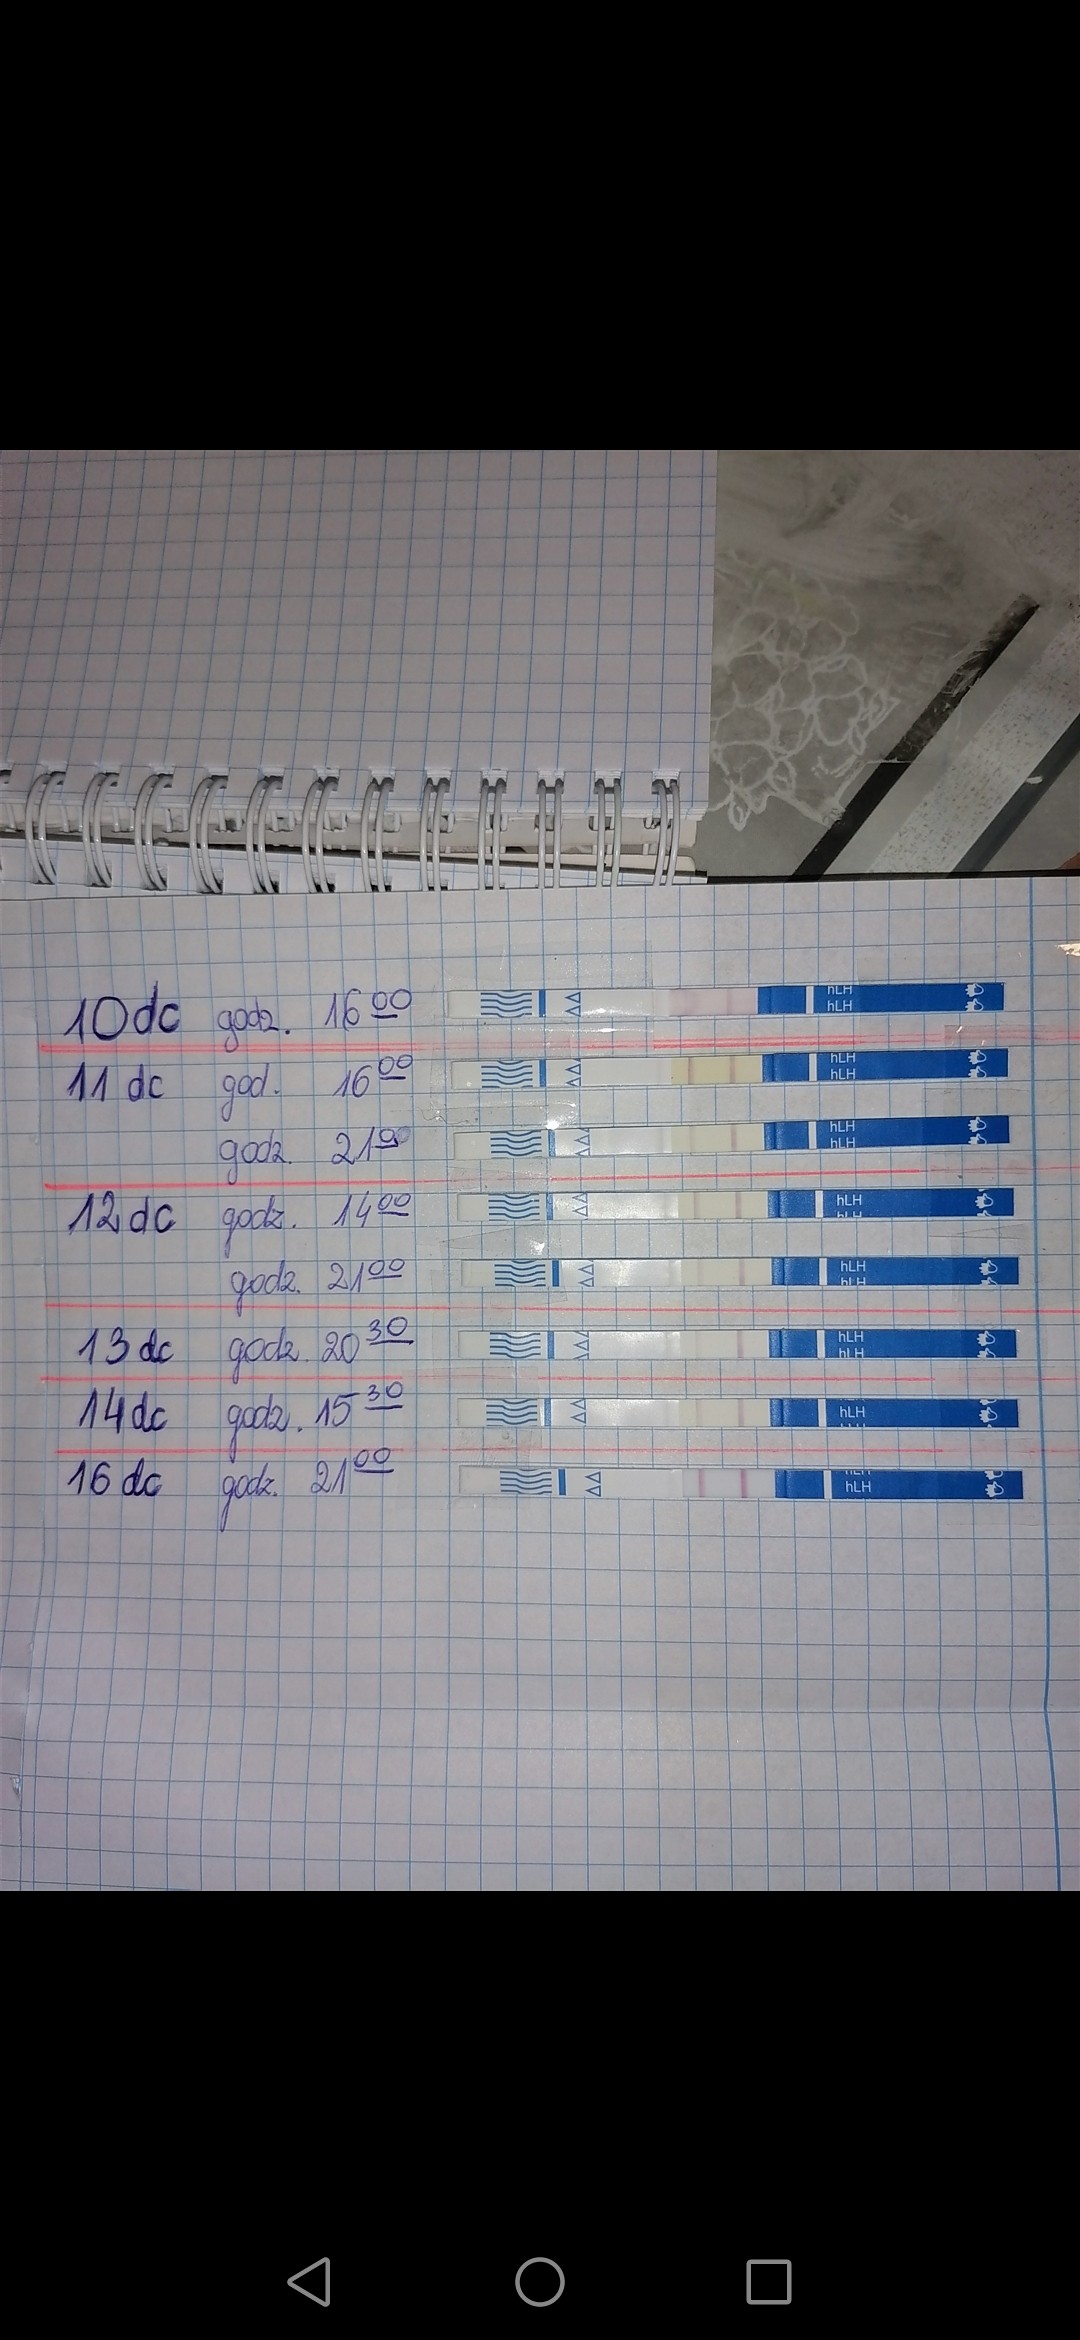 10dc godz. 16 00 hLH hLH
11 dc god. 16 00 hLH hLH
godz. 21 00 hLH hLH
12dc godz. 14 00 hLH hLH
godz. 21 00 hLH hLH
13 dc godz. 20 30 hLH hLH
14dc godz. 15 30 hLH
16 dc godz. 21 00 hLH hLH